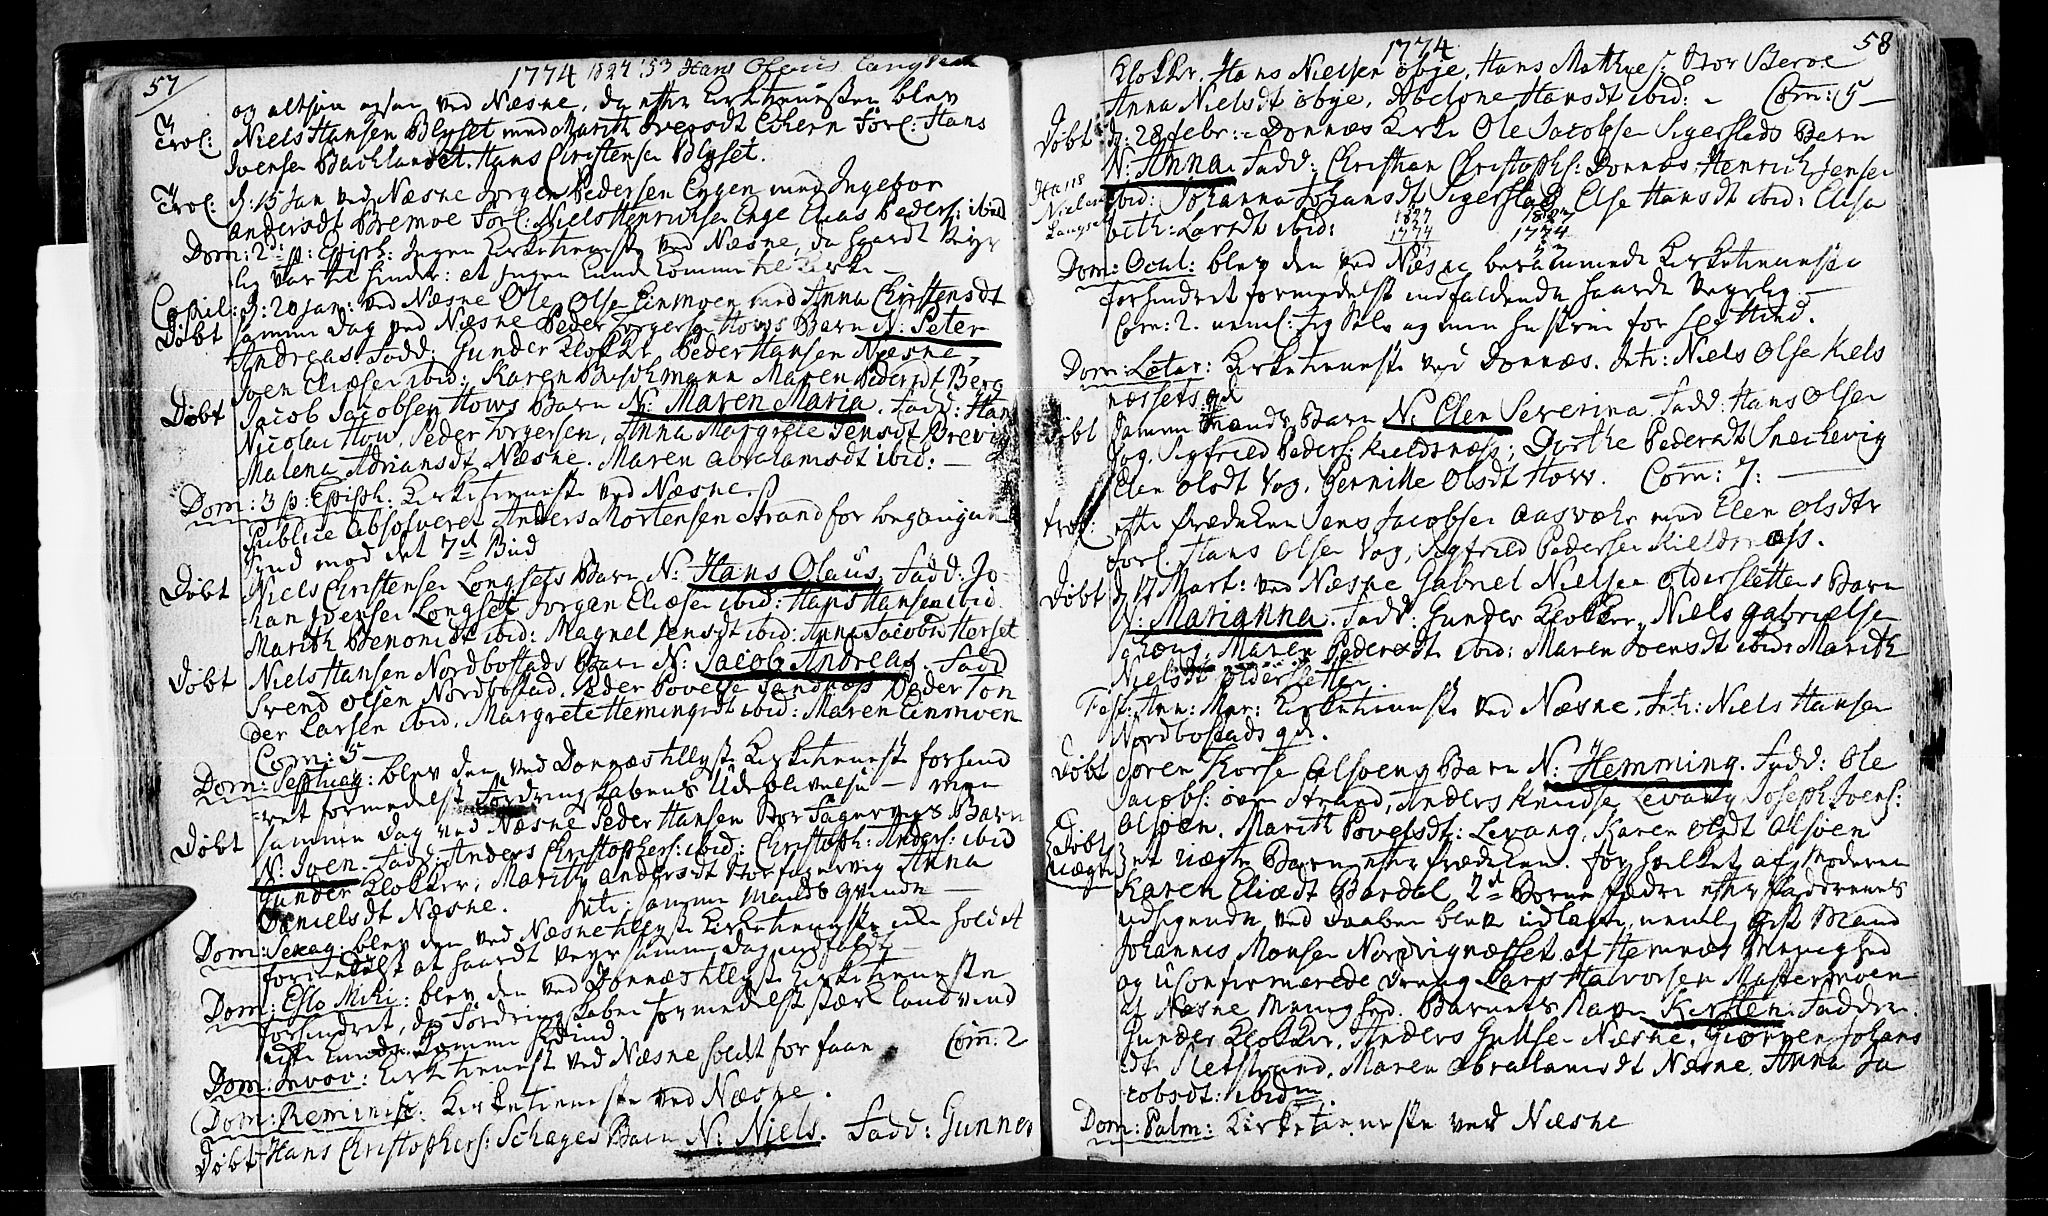 57
1774 1827 53 Hans Olaus Langset
og altsaa ogsaa ved Næsne, da efter Kirketienesten blev
Trol: Niels Hansen Blyset med Marith Iversdt Forl: Hans
Ivensen Baklandet. Hans Christensen Blyset.
Trol: d: 15 Jan ved Næsne Jørgen Pedersen Engen med Ingebor
Andersdt Bremoe Forl: Niels Henrichsen Enge Elias Peders: ibid
Dom: 2 p: Epiph: Ingen Kirketieneste ved Næsne, da haardt Veyr
lig var til hinder: at Ingen kunde komme til Kirke
Copul: d: 20 Jan: ved Næsne Ole Olsen Einmoen med Anna Christensdt
Døbt samme dag ved Næsne Peder Torgers: Hows Barn N: Peter
Andreas. Fadd: Gunder Klokker, Peder Hansen Næsne,
Joen Eliæsen ibid: Karen Buschmann Maren Pedersdt Berg
Døbt Jacob Jacobsen Hows Barn N: Maren Maria. Fadd: Hans
Nicolai How, Peder Torgersen, Anna Margrete Jensdt Brevig
Malena Adriansdt Næsne. Maren Abrahamsdt ibid:
Dom: 3 p: Epiph: Kirketieneste ved Næsne.
Publice Absolveret Anders Mortensen Strand for begangne
Synd mod det 7de Bud
Døbt Niels Christensen Longsets Barn N: Hans Olaus, Fadd: Jo-
han Ivensen Longset Jørgen Eliæsen ibid: Hans Hansen ibid
Marith Benonisdt ibid: Magnel Jensdt ibid: Anna Jacobsd Herset
Døbt Niels Hansen Nordbostads Barn N: Jacob Andreas. Fadd
Svend Olsen Nordbostad. Peder Povelse Sandnæs Peder Ton
der Larsen ibid. Margrete Hemingsdt ibid: Maren Einmoen
Com: 5
Dom: Septuag: blev den ved Dønnæs tillyste Kirketieneste forhind
ret formedelst Fordringskabens Udeblivelse — men
Døbt samme dag ved Næsne Peder Hansen Stor Fagervigs Barn
N: Iven. Fadd: Anders Christophers: ibid: Christoph: Anders: ibid
Gunder Klokker, Marith Andersdt Storfagervig Anna
Danielsdt Næsne. Intr: samme Mands Qvinde
Dom: Sexag: blev den ved Næsne tillyste Kirketieneste ikke holdet
formedelst at haardt Veyr samme dag indfaldt
Dom: Esto Mihi: blev den ved Dønnæs tillyste Kirketieneste
forhindret, da Fordringskaben formedelst stærk Landvind
ikke kunde komme
Dom: Invoc: Kirketieneste ved Næsne holdt for faae Com: 2
Dom: Reminisc: Kirketieneste ved Næsne.
Døbt Hans Christophers: Schages Barn N: Niels. Fadd: Gunner
1774
58
Klokker, Hans Nielsen øbye, Hans Matthies: Stor Beroe
Anna Nielsdt øbye, Abelone Hansdt ibid: Com: 5
Døbt d: 28 febr: i Dønnæs Kirke Ole Jacobsen Sigerstads Barn
N: Anna. Fadd: Christian Christophs: Dønnæs, Henrich Jensen
Hans
Nielsen
Langset
ibid: Johanna Johansdt Sigerstad Else Hansdt ibid: Elisa
beth: Larsdt ibid:
1827 1827
1774 1774
53 53
Dom: Ocul: blev den ved Næsne berammede Kirketieneste
forhindret formedelst indfaldende haardt Veyrlig
Com: 2. neml: Jeg Selv og min Hustrue for
Dom: Lætar: Kirketieneste ved Dønnæs. Intr: Niels Olsen Kiels
næssets qd
Døbt samme Mands Barn N: Elen Severina Fadd: Hans Olsen
Vog, Sigfried Peders: Kieldsnæss, Dorthe Pedersdt Snechevig
Elen Olsdt Vog, Pernille Olsdt How. Com: 7:
Trol: efter Prædiken Jens Jacobsen Aasvær med Elen Olsdtr
Forl. Hans Olsen Vog, Sigfried Pedersen Kieldsnæss.
Døbt d 17 Mart: ved Næsne Gabriel Nielsen Oldersletten s Barn
N: Marianna. Fadd: Gunder Klokker, Niels Gabrielsen
Maren Pedersdt ibid: Maren Ivensdt ibid: Marith
Nielsdt Oldersletten.
Fest: Ann: Mar: Kirketieneste ved Næsne. Intr: Niels Hansen
Nordbostads qd.
Døbt Søren Korsen Alsøens Barn N: Hemming. Fadd: Ole
Jacobs: Strand, Anders Knudse Levang Joseph Ivens:
Alsøen. Marith Povelsdt: Levang, Karen Olsdt Alsøen
Døbt
uægte
Et uægte Barn efter Prædiken. for hvilket af Moderen
Karen Eliædt Bardal, 2de Børne fædre efter Faddrenes
udsigende ved Daaben blev udlagte, neml. gift Mand
Johannes Monsen Nordvignæsset af Hemnes Menighed
og uconfirmerede dreng Lars Halvorsen Mastermoen
af Næsne Menighed. Barnets Navn Kirsten. Faddre.
Gunder Klokker, Anders Næsne, Johans
dt Retstrand, Maren Abrahamsdt Næsne. Anna Ja
cobsdt: ibidm
Dom: Palm: Kirketieneste ved Næsne